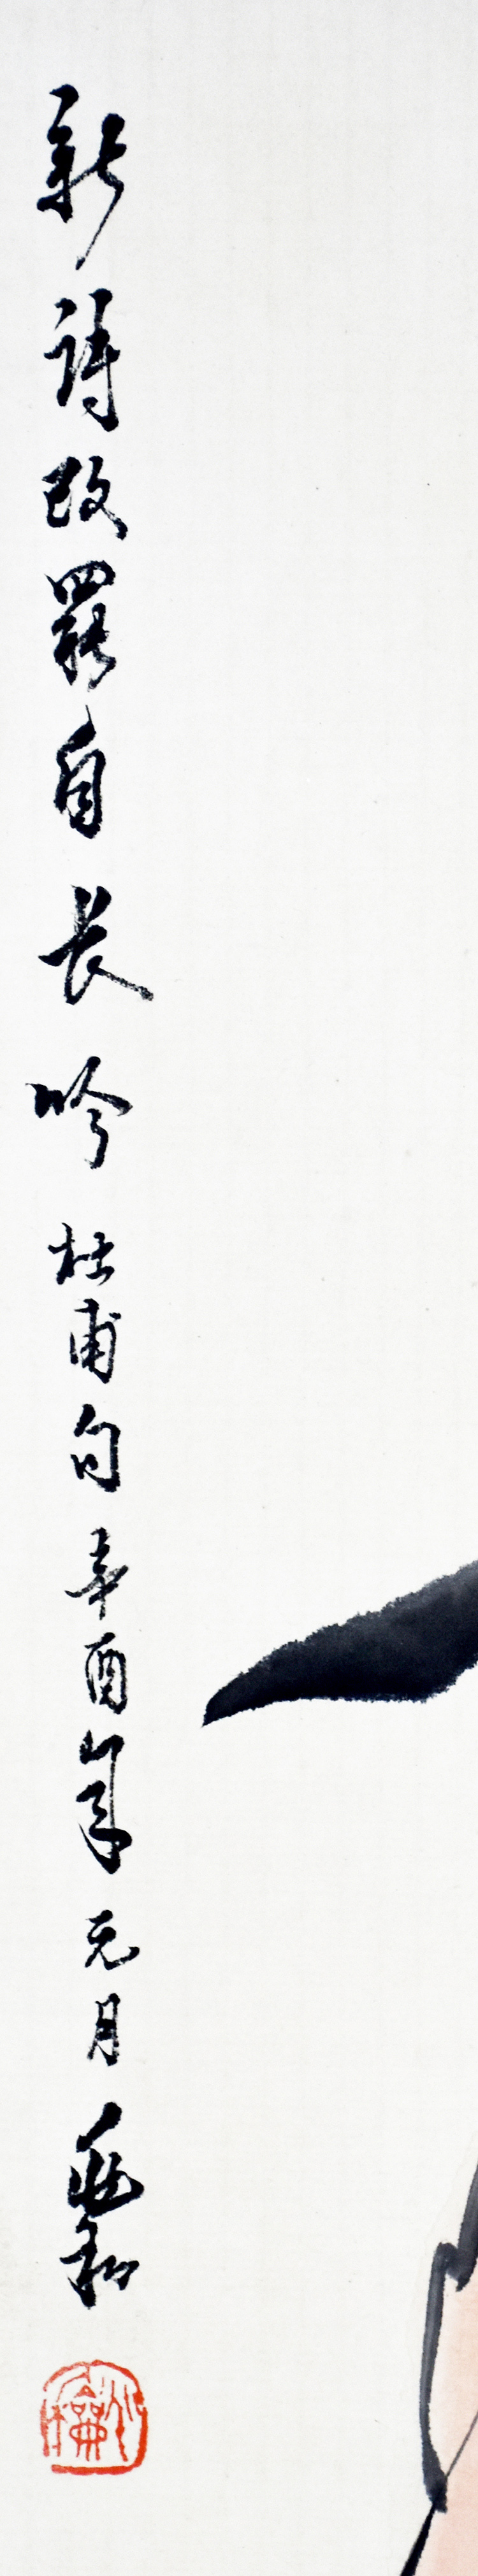 新詩改罷自長吟杜甫句辛酉年元月兆和